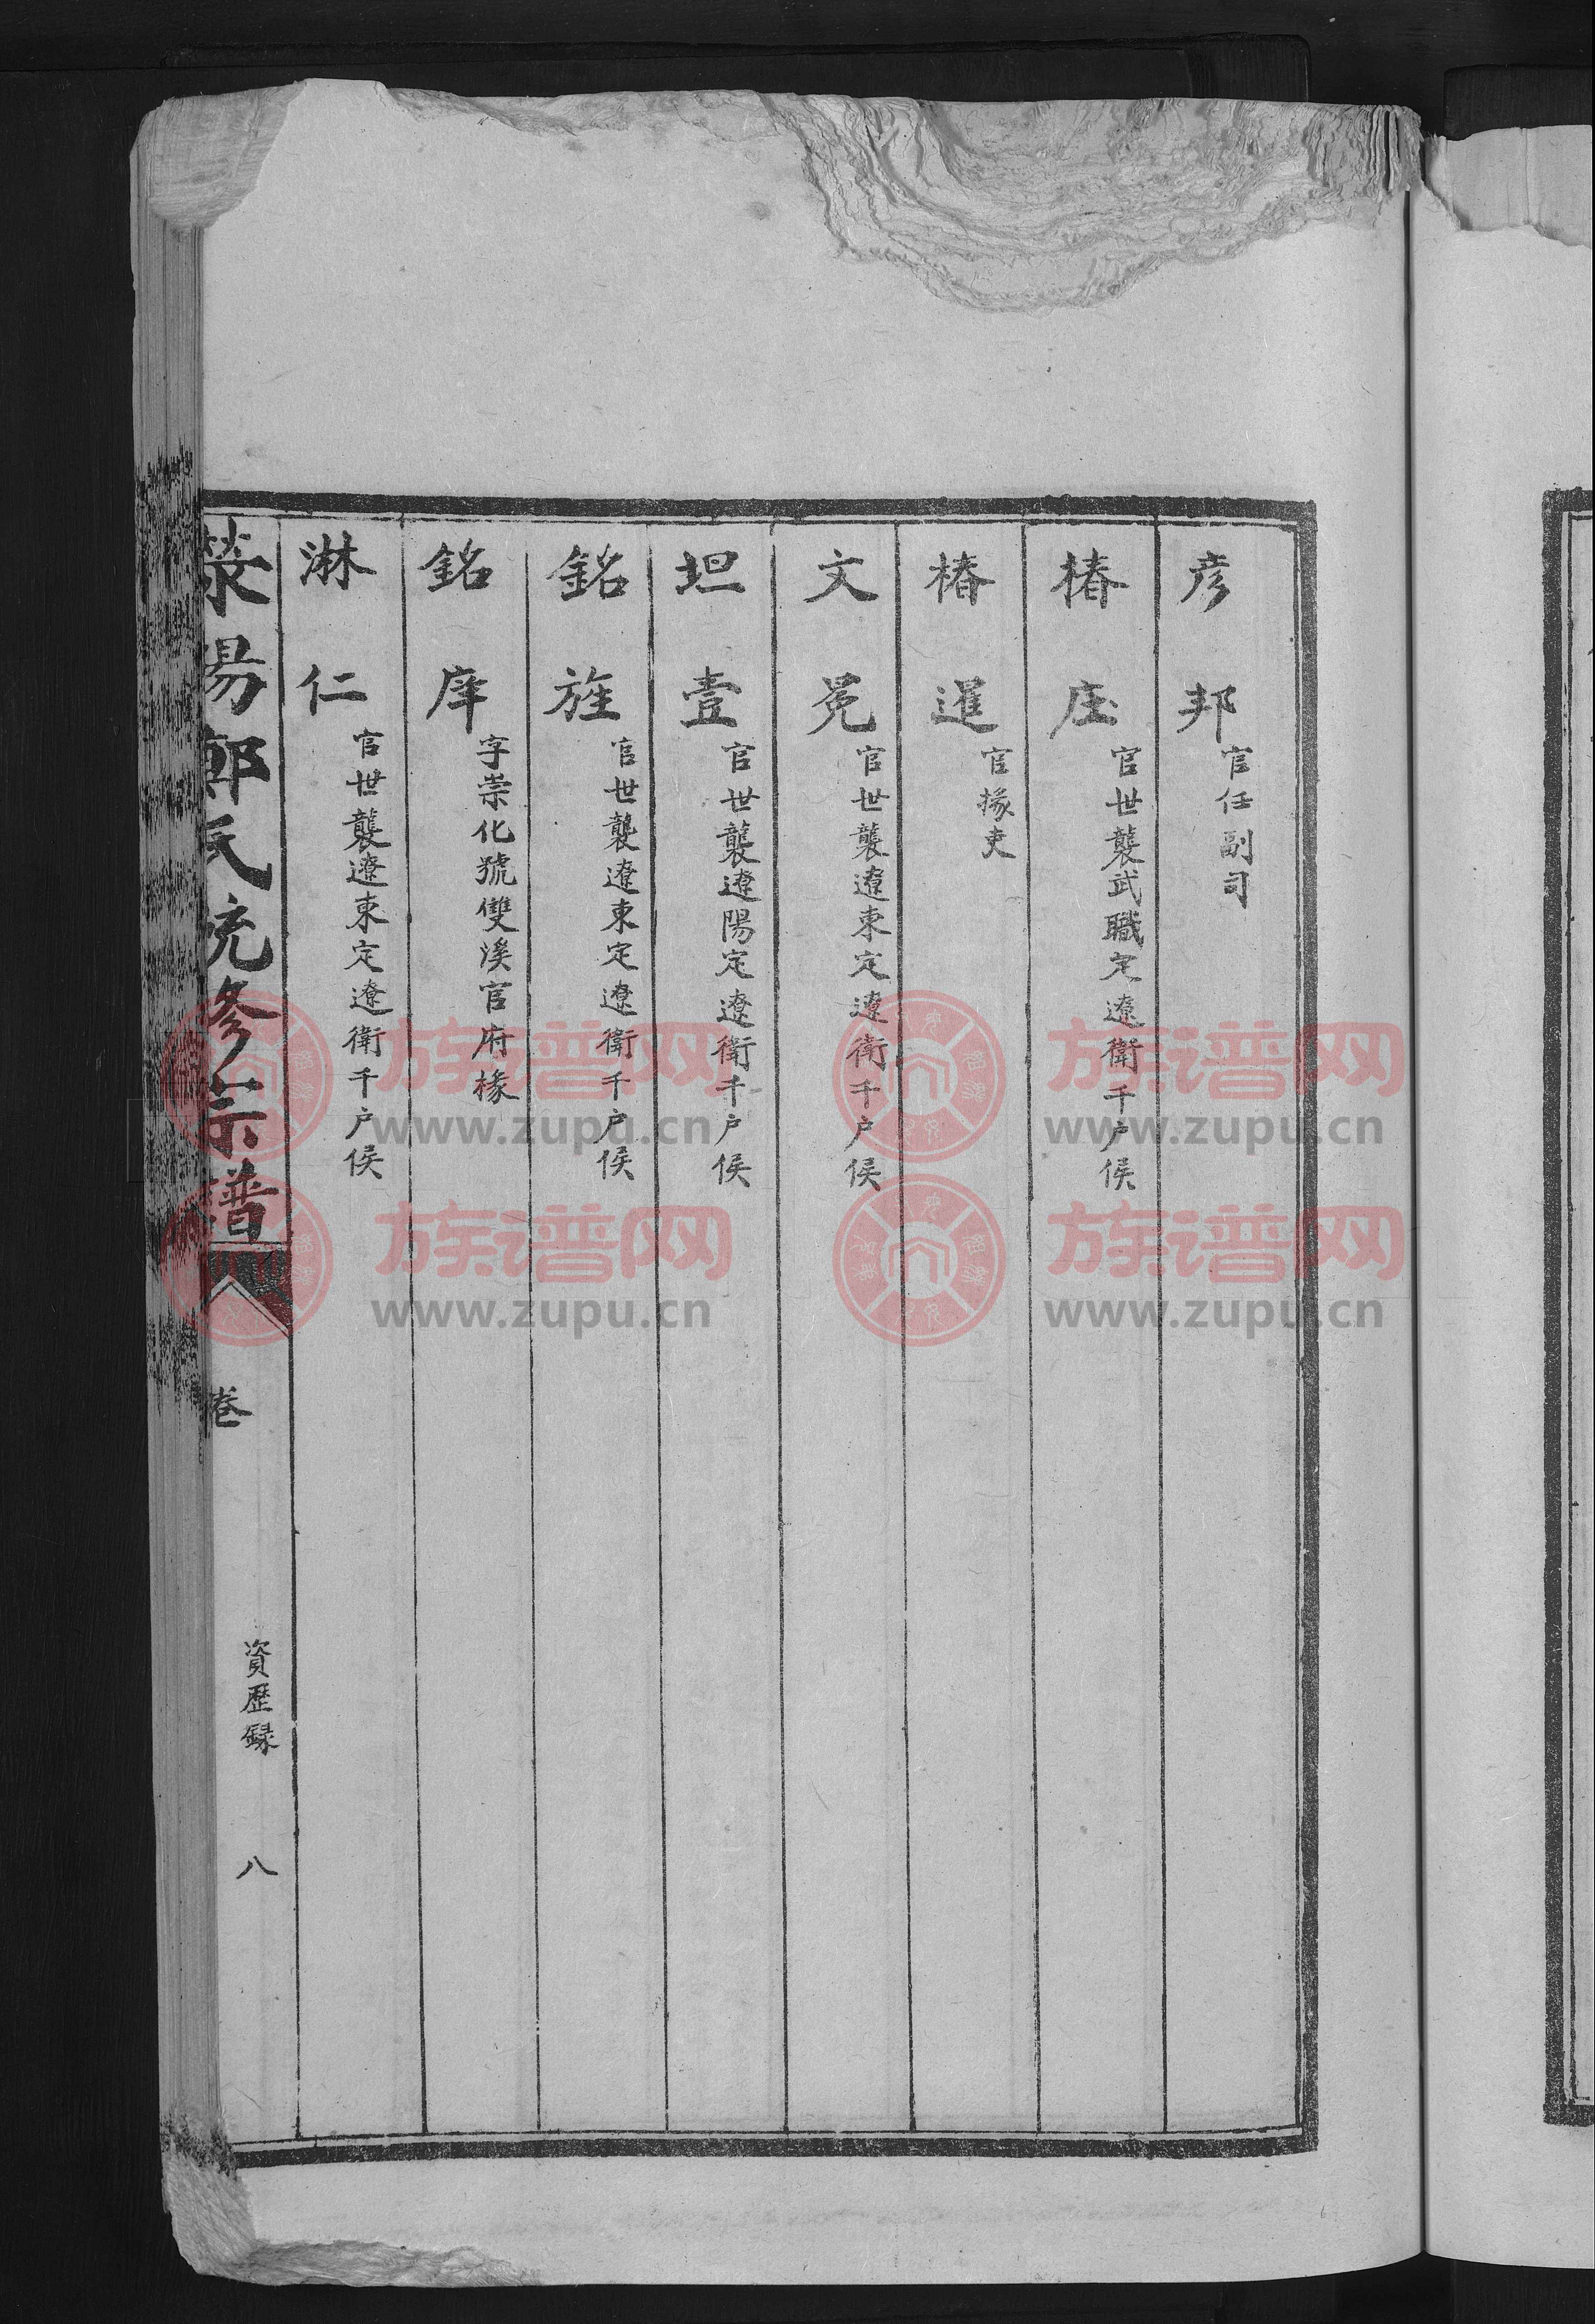 彦邦 官任副司
椿庒 官世襲武職定遼衛千户侯
椿暹 官掾吏
文冕 官世襲遼東定遼衛千户侯
坦壹 官世襲遼陽定遼衛千户侯
銘旌 官世襲遼東定遼衛千户侯
銘庠 字崇化號雙溪官府椽
淋仁 官世襲遼東定遼衛千户侯
滎陽鄭氏統叅宗譜 卷 資歷録 八
族谱网 www.zupu.cn
族谱网 www.zupu.cn
族谱网 www.zupu.cn
族谱网 www.zupu.cn